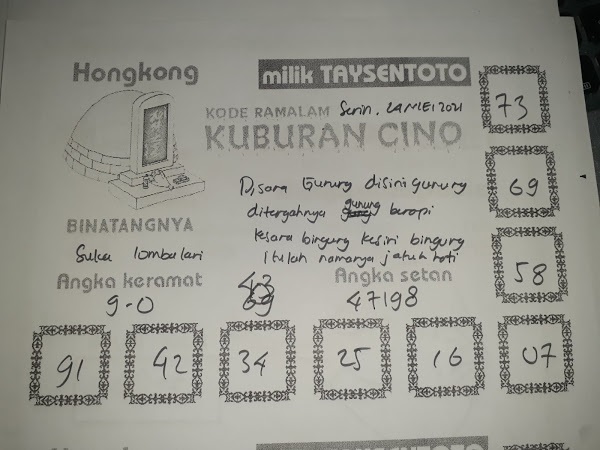 Hongkong
milik TAYSENTOTO
KODE RAMALAM Senin, 24 MEI 2021
KUBURAN CINO
73
69
58
Disana Gunung disini gunung
ditengahnya gunung berapi
kesana bingung kesini bingung
itulah namanya jatuh hati
BINATANGNYA
Suka lomba lari
Angka keramat
9-0
43
69
Angka setan
47198
91
42
34
25
16
07
milik TAYSENTOTO